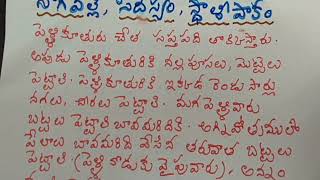 నాగవల్లి, సదస్యం, స్థాళీపాకం
పెళ్ళికూతురు చేత సప్తపది తొక్కిస్తారు.
అపుడు పెళ్ళికూతురికి నల్లపూసలు, మెట్టెలు
పెట్టాలి. పెళ్ళికూతురికి ఇక్కడ రెండు సార్లు
నగలు, చీరలు పెట్టాలి. మగపెళ్ళివారు
బట్టలు పెట్టాలి బావమరిదికి. అగ్నిహోత్రములో
పేలాలు బావమరిది వేసిన తరువాత బట్టలు
పెట్టాలి. (పెళ్ళి కొడుకు వైపువారు), అన్నం